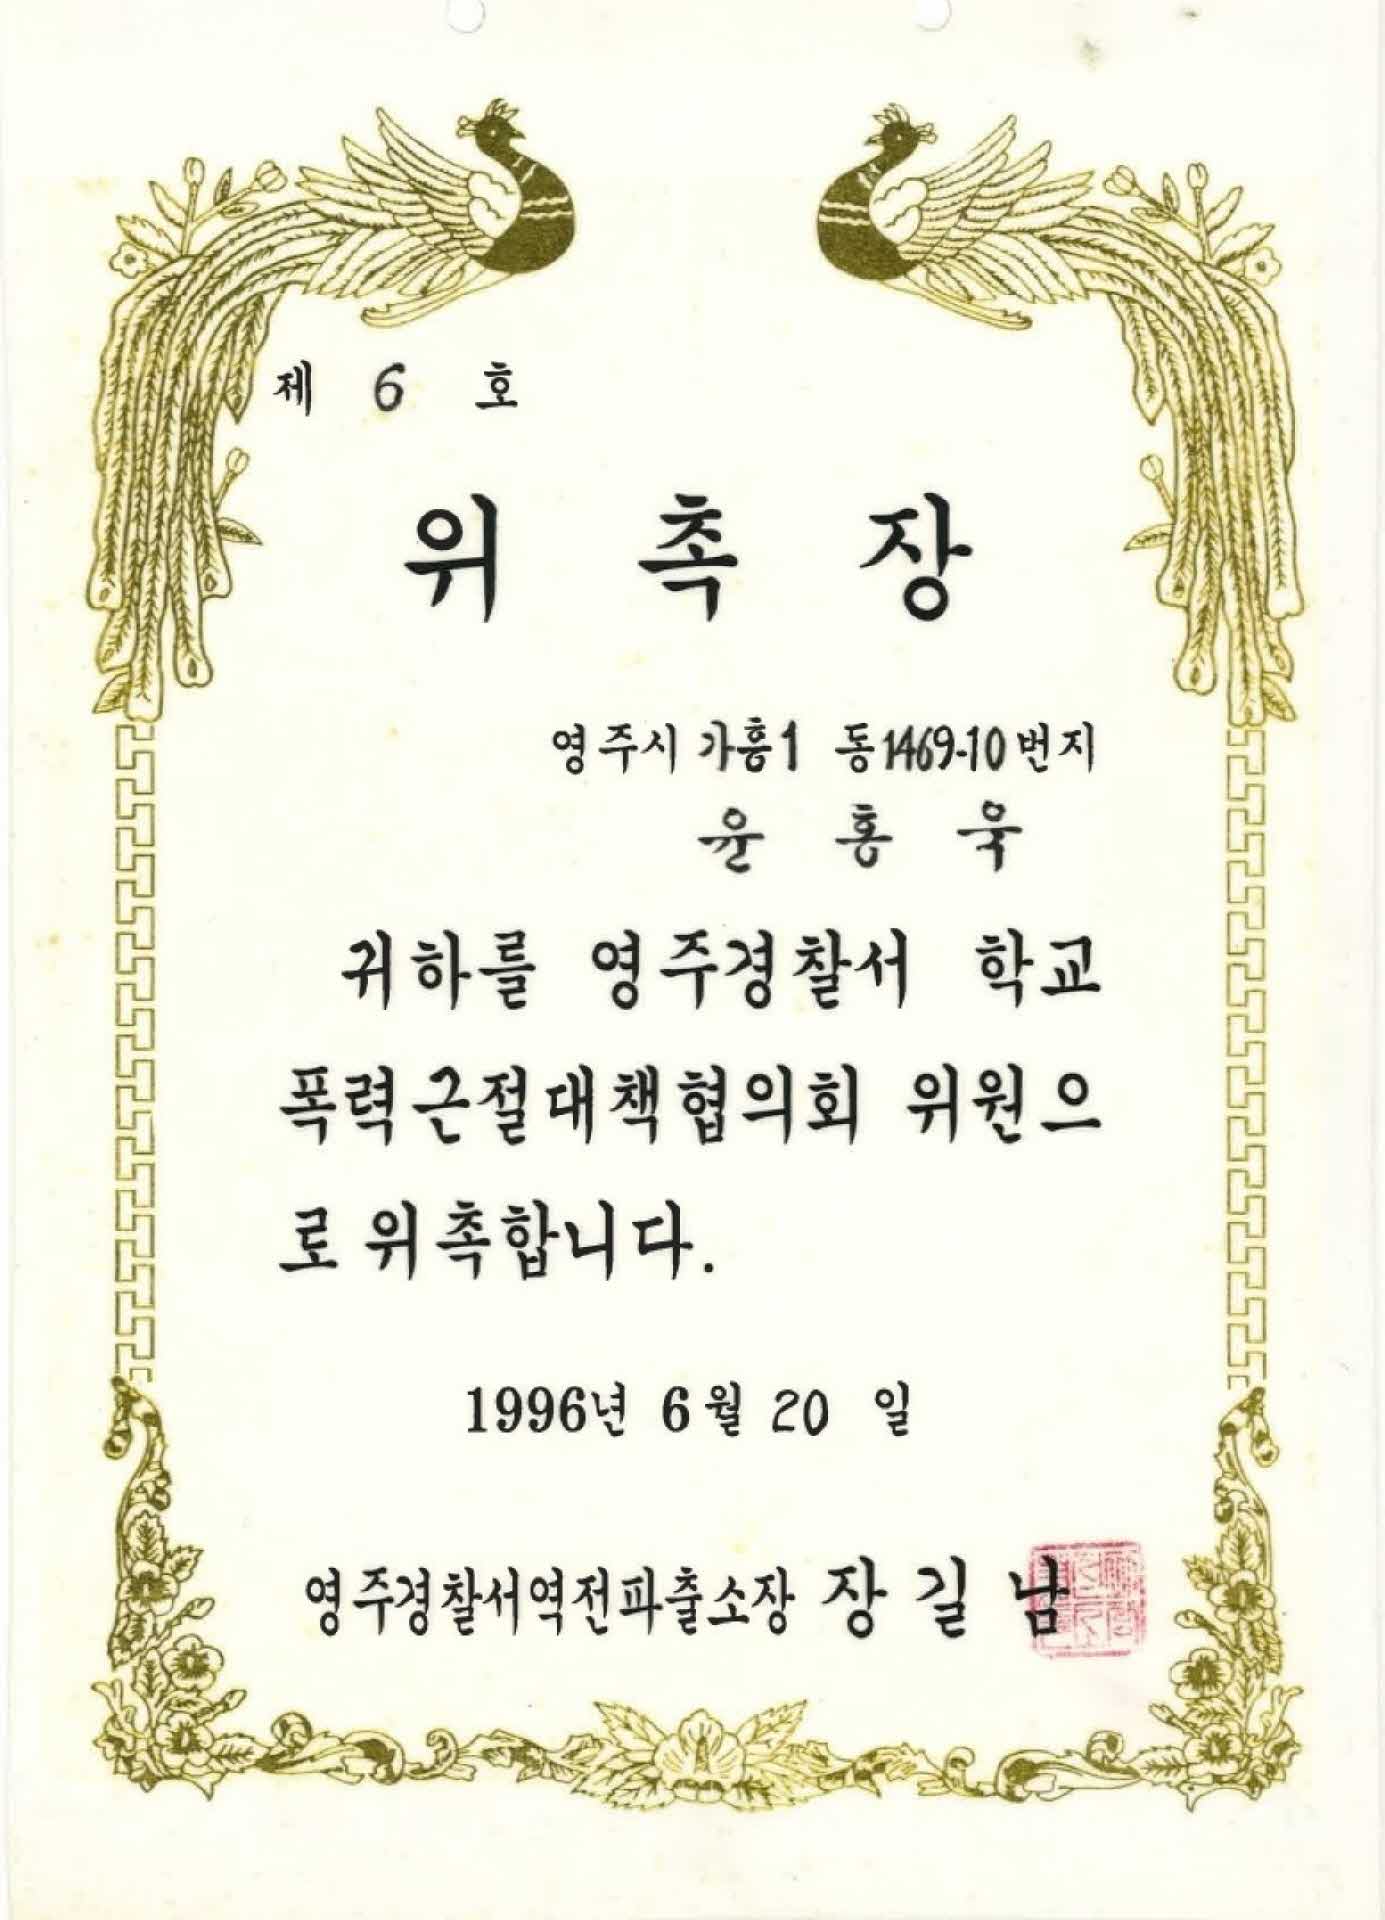 제 6 호
위 촉 장
영주시 가흥1 동1469-10번지
윤 홍 욱
귀하를 영주경찰서 학교
폭력근절대책협의회 위원으
로 위촉합니다.
1996년 6월 20 일
영주경찰서역전파출소장 장길남